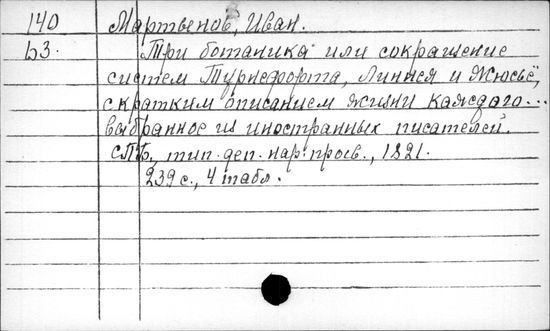 140 Мартвенов, Иван.
63. Три ботаника или сокращение
систем Турнефорта, Линнея и Жюсьё,
с кратким описанием жизни каждаго...
выбранное из иностранных писателей.
СПБ, тип. деп. нар. просв., 1821.
239 с., 4 табл.